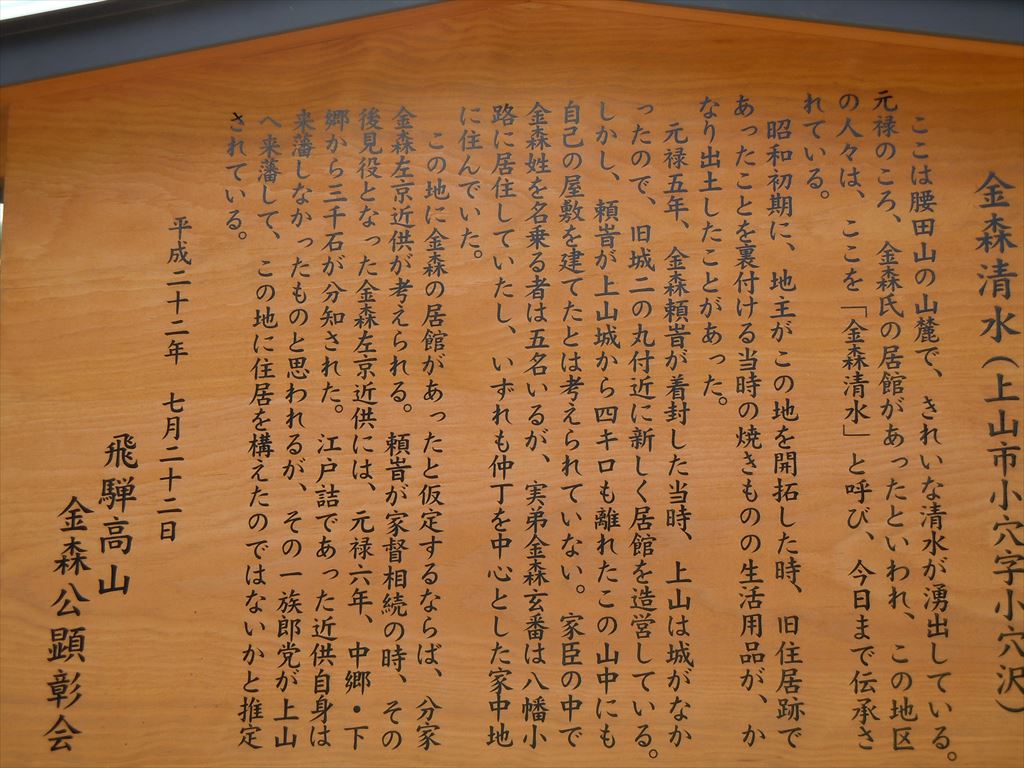 金森清水(上山市小穴字小穴沢)
ここは腰田山の山麓で、きれいな清水が湧出している。
元禄のころ、金森氏の居館があったといわれ、この地区
の人々は、ここを「金森清水」と呼び、今日まで伝承さ
れている。
昭和初期に、地主がこの地を開拓した時、旧住居跡で
あったことを裏付ける当時の焼きものの生活用品が、か
なり出土したことがあった。
元禄五年、金森頼旹が着封した当時、上山は城がなか
ったので、旧城二の丸付近に新しく居館を造営している。
しかし、頼旹が上山城から四キロも離れたこの山中にも
自己の屋敷を建てたとは考えられていない。家臣の中で
金森姓を名乗る者は五名いるが、実弟金森玄番は八幡小
路に居住していたし、いずれも仲丁を中心とした家中地
に住んでいた。
この地に金森の居館があったと仮定するならば、分家
金森左京近供が考えられる。頼旹が家督相続の時、その
後見役となった金森左京近供には、元禄六年、中郷・下
郷から三千石が分知された。江戸詰であった近供自身は
来藩しなかったものと思われるが、その一族郎党が上山
へ来藩して、この地に住居を構えたのではないかと推定
されている。
平成二十二年 七月二十二日
飛騨高山
金森公顕彰会